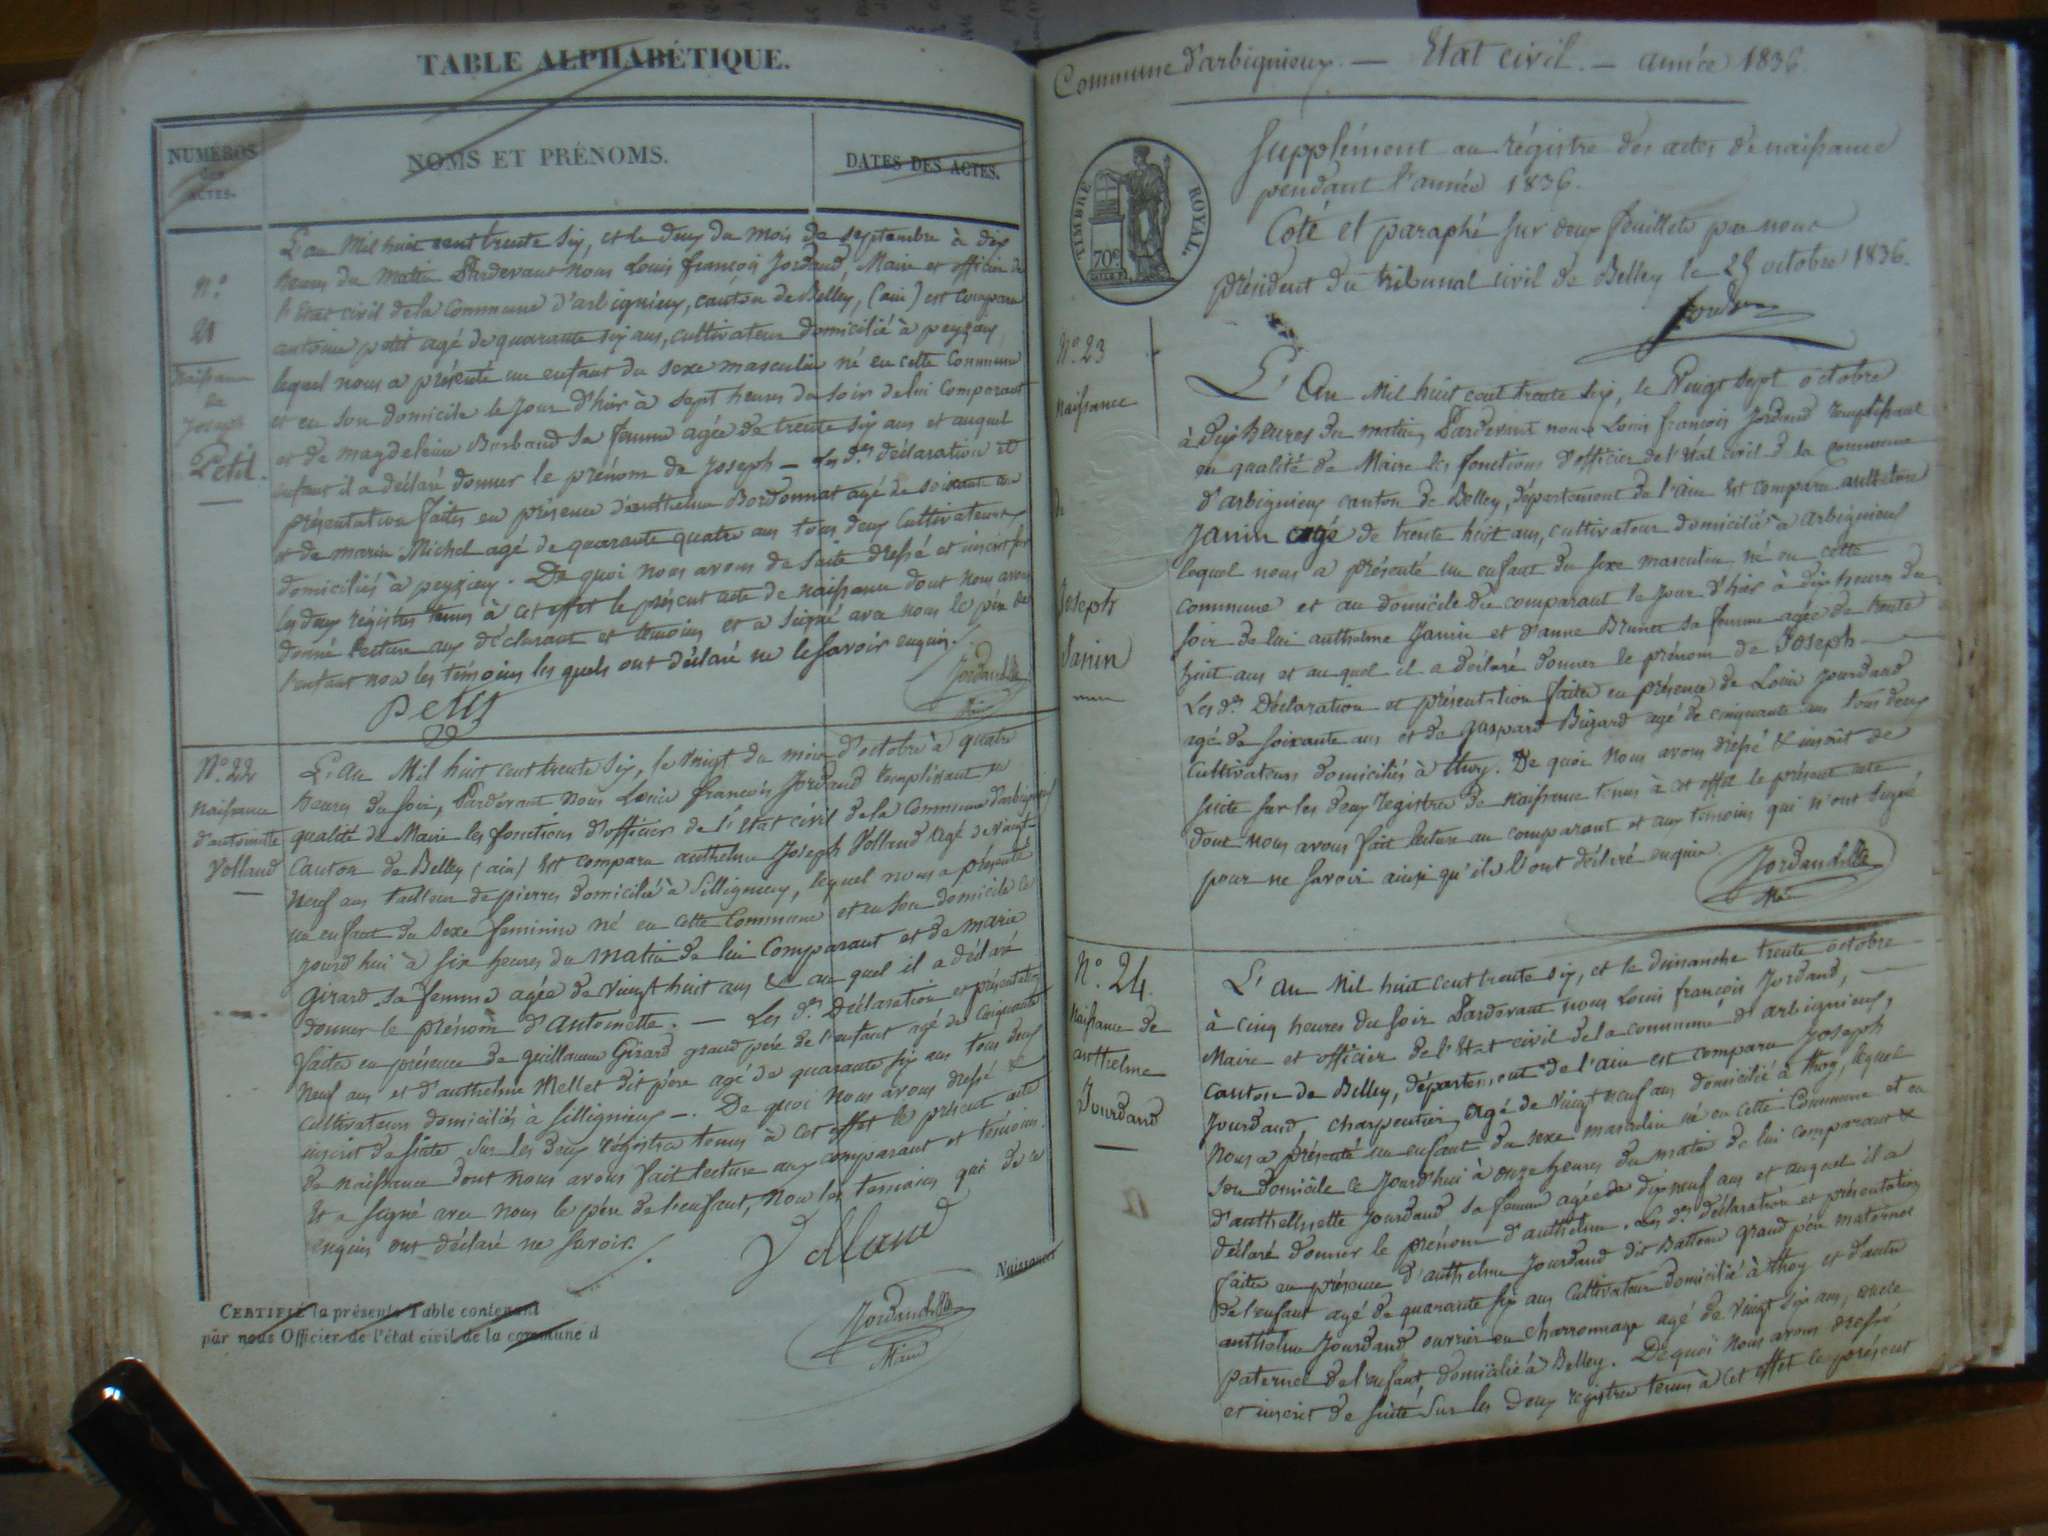 TABLE ALPHABÉTIQUE.
NUMÉROS
DES
ACTES.
NOMS ET PRÉNOMS.
DATES DES ACTES.
n.o
21
Naissance
de
Joseph
Petit.
L'an Mil huit cent trente six, et le deux du mois de septembre à dix
heures du matin Pardevant nous Louis françois Jordand, Maire et officier de
l'Etat civil de la Commune d'arbignieux, canton de Belley, (ain) est comparu
antoine petit agé de quarante six ans, cultivateur domicilié à peyzieux,
lequel nous a présenté un enfant du sexe masculin né en cette Commune
et en son domicile le jour d'hier à sept heures du soir de lui Comparant
et de magdeleine Barbaud sa femme agée de trente six ans et auquel
enfant il a déclaré donner le prénom de Joseph — Les d.es déclaration et
présentation faites en présence d'anthelme Bordonnat agé de soixante un
et de marin Michel agé de quarante quatre ans tous deux Cultivateurs
domiciliés à peyzieux. De quoi nous avons de suite dressé et inscrit sur
les deux régistres tenus à cet effet le présent acte de naissance dont nous avons
donné lecture aux déclarant et témoins et a signé avec nous le père de
l'enfant non les témoins les quels ont déclaré ne le savoir enquis.
Petit
Jordand
Maire
N.o 22
Naissance
d'antoinette
Volland
L'an Mil huit cent trente six, le vingt du mois d'octobre à quatre
heures du soir, Pardevant nous Louis françois Jordand remplissant en
qualité de Maire les fonctions d'officier de l'Etat civil de la Commune d'arbignieux
Canton de Belley (ain) est comparu anthelme Joseph Volland agé de vingt
neuf ans tailleur de pierres domicilié à Sillignieux, lequel nous a présenté
un enfant du sexe feminin né en cette Commune et en son domicile ce
jourd'hui à six heures du matin de lui Comparant et de marie
Girard sa femme agée de vingt huit ans & au quel il a déclaré
donner le prénom d'Antoinette. — Les d.es Déclaration et présentation
faites en présence de guillaume Girard grand père de l'enfant agé de Cinquante
neuf ans et d'anthelme Mellet dit père agé de quarante six ans tous deux
cultivateurs domiciliés à Sillignieux —. De quoi nous avons dressé &
inscrit de suite sur les deux régistres tenus à cet effet le présent acte
de naissance dont nous avons fait lecture aux comparant et témoins.
Et a signé avec nous le père de l'enfant, non les témoins qui de ce
enquis ont déclaré ne savoir.
Volland
Naissances
Jordand
Maire
CERTIFIÉ la présente Table contenant
par nous Officier de l'état civil de la commune d
Commune d'arbignieux. — Etat civil. — année 1836.
TIMBRE ROYAL.
70c
Supplément au régistre des actes de naissance
pendant l'année 1836.
Coté et paraphé sur deux feuillets par nous
président du tribunal civil de Belley le 25 octobre 1836.
N.o 23
Naissance
de
Joseph
Janin
L'An Mil huit cent trente six, le Vingt sept octobre
à dix heures du matin, Pardevant nous Louis françois Jordand remplissant
en qualité de Maire les fonctions d'officier de l'état civil de la commune
d'arbignieux canton de Belley, département de l'ain Est comparu anthelme
Janin agé de trente huit ans, cultivateur domicilié à arbignieux
lequel nous a présenté un enfant du sexe masculin né en cette
commune et au domicile du comparant le jour d'hier à dix heures du
soir de lui anthelme Janin et d'anne Brunet sa femme agée de trente
huit ans et au quel il a déclaré donner le prénom de Joseph —
Les d.es Déclaration et présentation faites en présence de Louis Jourdand
agé de soixante ans et de gaspard Buzard agé de cinquante ans tous deux
Cultivateurs domiciliés à thoy. De quoi nous avons dressé & inscrit de
suite sur les deux registres de naissance tenus à cet effet le présent acte
dont nous avons fait lecture au comparant et aux témoins qui n'ont signé
pour ne savoir ainsi qu'ils l'ont déclaré enquis.
Jordand
Maire
N.o 24.
Naissance de
anthelme
Jourdand
L'an Mil huit cent trente six, et le dimanche trente octobre
à cinq heures du soir Pardevant nous Louis françois Jordand,
Maire et officier de l'Etat civil de la commune d'arbignieux,
Canton de Belley, département de l'ain est comparu Joseph
Jourdand, charpentier, agé de vingt neuf ans domicilié à thoy, lequel
Nous a présenté un enfant du sexe masculin né en cette Commune et en
son domicile ce jourd'hui à onze heures du matin de lui comparant &
d'anthelmette Jourdand sa femme agée de dix neuf ans et auquel il a
déclaré donner le prénom d'anthelme. Les d.es déclaration et présentation
faites en présence d'anthelme Jourdand dit Battone grand père maternel
de l'enfant agé de quarante six ans Cultivateur domicilié à thoy et d'autre
anthelme Jourdand ouvrier en charronnage agé de vingt six ans, oncle
paternel de l'enfant domicilié à Belley. De quoi nous avons dressé
et inscrit de suite sur les deux registres tenus à cet effet le présent